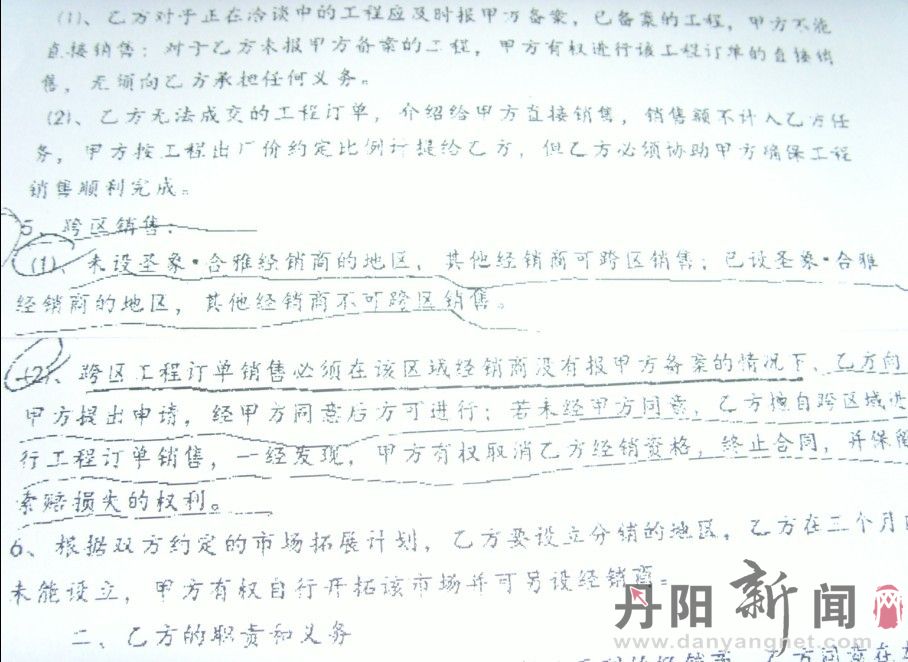 (1)、乙方对于正在洽谈中的工程应及时报甲方备案，已备案的工程，甲方不能
直接销售；对于乙方未报甲方备案的工程，甲方有权进行该工程订单的直接销
售，无须向乙方承担任何义务。
(2)、乙方无法成交的工程订单，介绍给甲方直接销售，销售额不计入乙方任
务，甲方按工程出厂价约定比例计提给乙方，但乙方必须协助甲方确保工程
销售顺利完成。
5、跨区销售：
(1)、未设圣象·合雅经销商的地区，其他经销商可跨区销售；已设圣象·合雅
经销商的地区，其他经销商不可跨区销售。
(2)、跨区工程订单销售必须在该区域经销商没有报甲方备案的情况下，乙方向
甲方提出申请，经甲方同意后方可进行；若未经甲方同意，乙方擅自跨区域进
行工程订单销售，一经发现，甲方有权取消乙方经销资格，终止合同，并保留
索赔损失的权利。
6、根据双方约定的市场拓展计划，乙方要设立分销的地区，乙方在三个月内
未能设立，甲方有权自行开拓该市场并可另设经销商。
二、乙方的职责和义务
丹阳新闻网
www.danyangnet.com